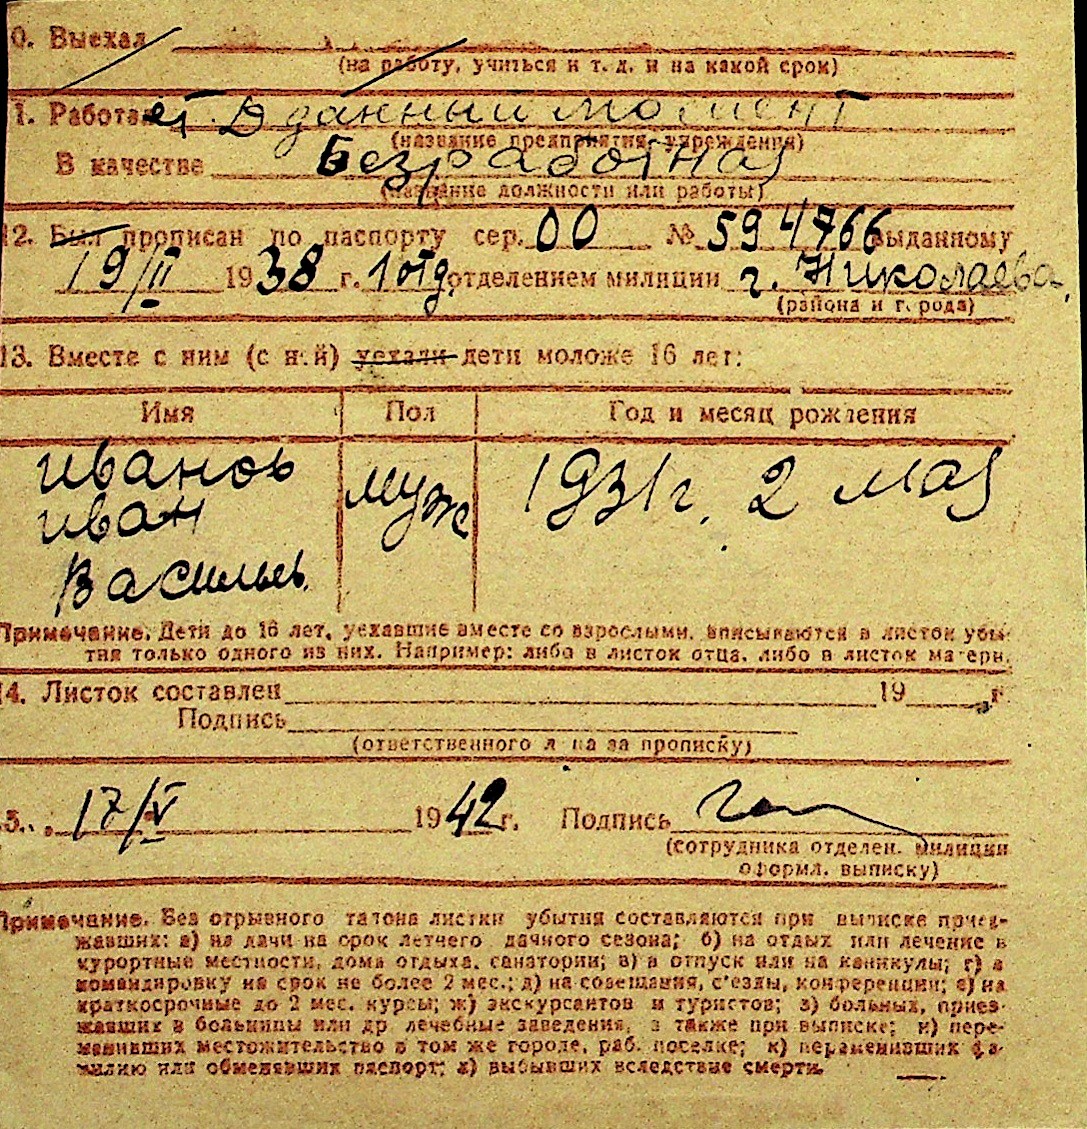 0. Выехал
(на работу, учиться и т. д. и на какой срок)
1. Работает В данный момент
(название предприятия, учреждения)
В качестве Безработная
(название должности или работы)
12. Был прописан по паспорту сер. 00 № 594766 выданному
19/II 1938 г. 1 отд. отделением милиции г. Николаева.
(района и города)
13. Вместе с ним (с ней) уехали дети моложе 16 лет:
Имя Пол Год и месяц рождения
Иванов
Иван
Васильев.
муж
1931 г. 2 мая
Примечание. Дети до 16 лет, уехавшие вместе со взрослыми, вписываются в листок убы-
тия только одного из них. Например: либо в листок отца, либо в листок матери.
14. Листок составлен 19 г.
Подпись
(ответственного лица за прописку)
5. 17/V 1942 г. Подпись
(сотрудника отделен. милиции
оформл. выписку)
Примечание. Без отрывного талона листки убытия составляются при выписке приез-
жавших: а) на дачи на срок летнего дачного сезона; б) на отдых или лечение в
курортные местности, дома отдыха, санатории; в) в отпуск или на каникулы; г) в
командировку на срок не более 2 мес.; д) на совещания, с'езды, конференции; е) на
краткосрочные до 2 мес. курсы; ж) экскурсантов и туристов; з) больных, приез-
жавших в больницы или др лечебные заведения, а также при выписке; и) пере-
менивших местожительство в том же городе, раб. поселке; к) переменивших фа-
милию или обменявших паспорт; л) выбывших вследствие смерти.